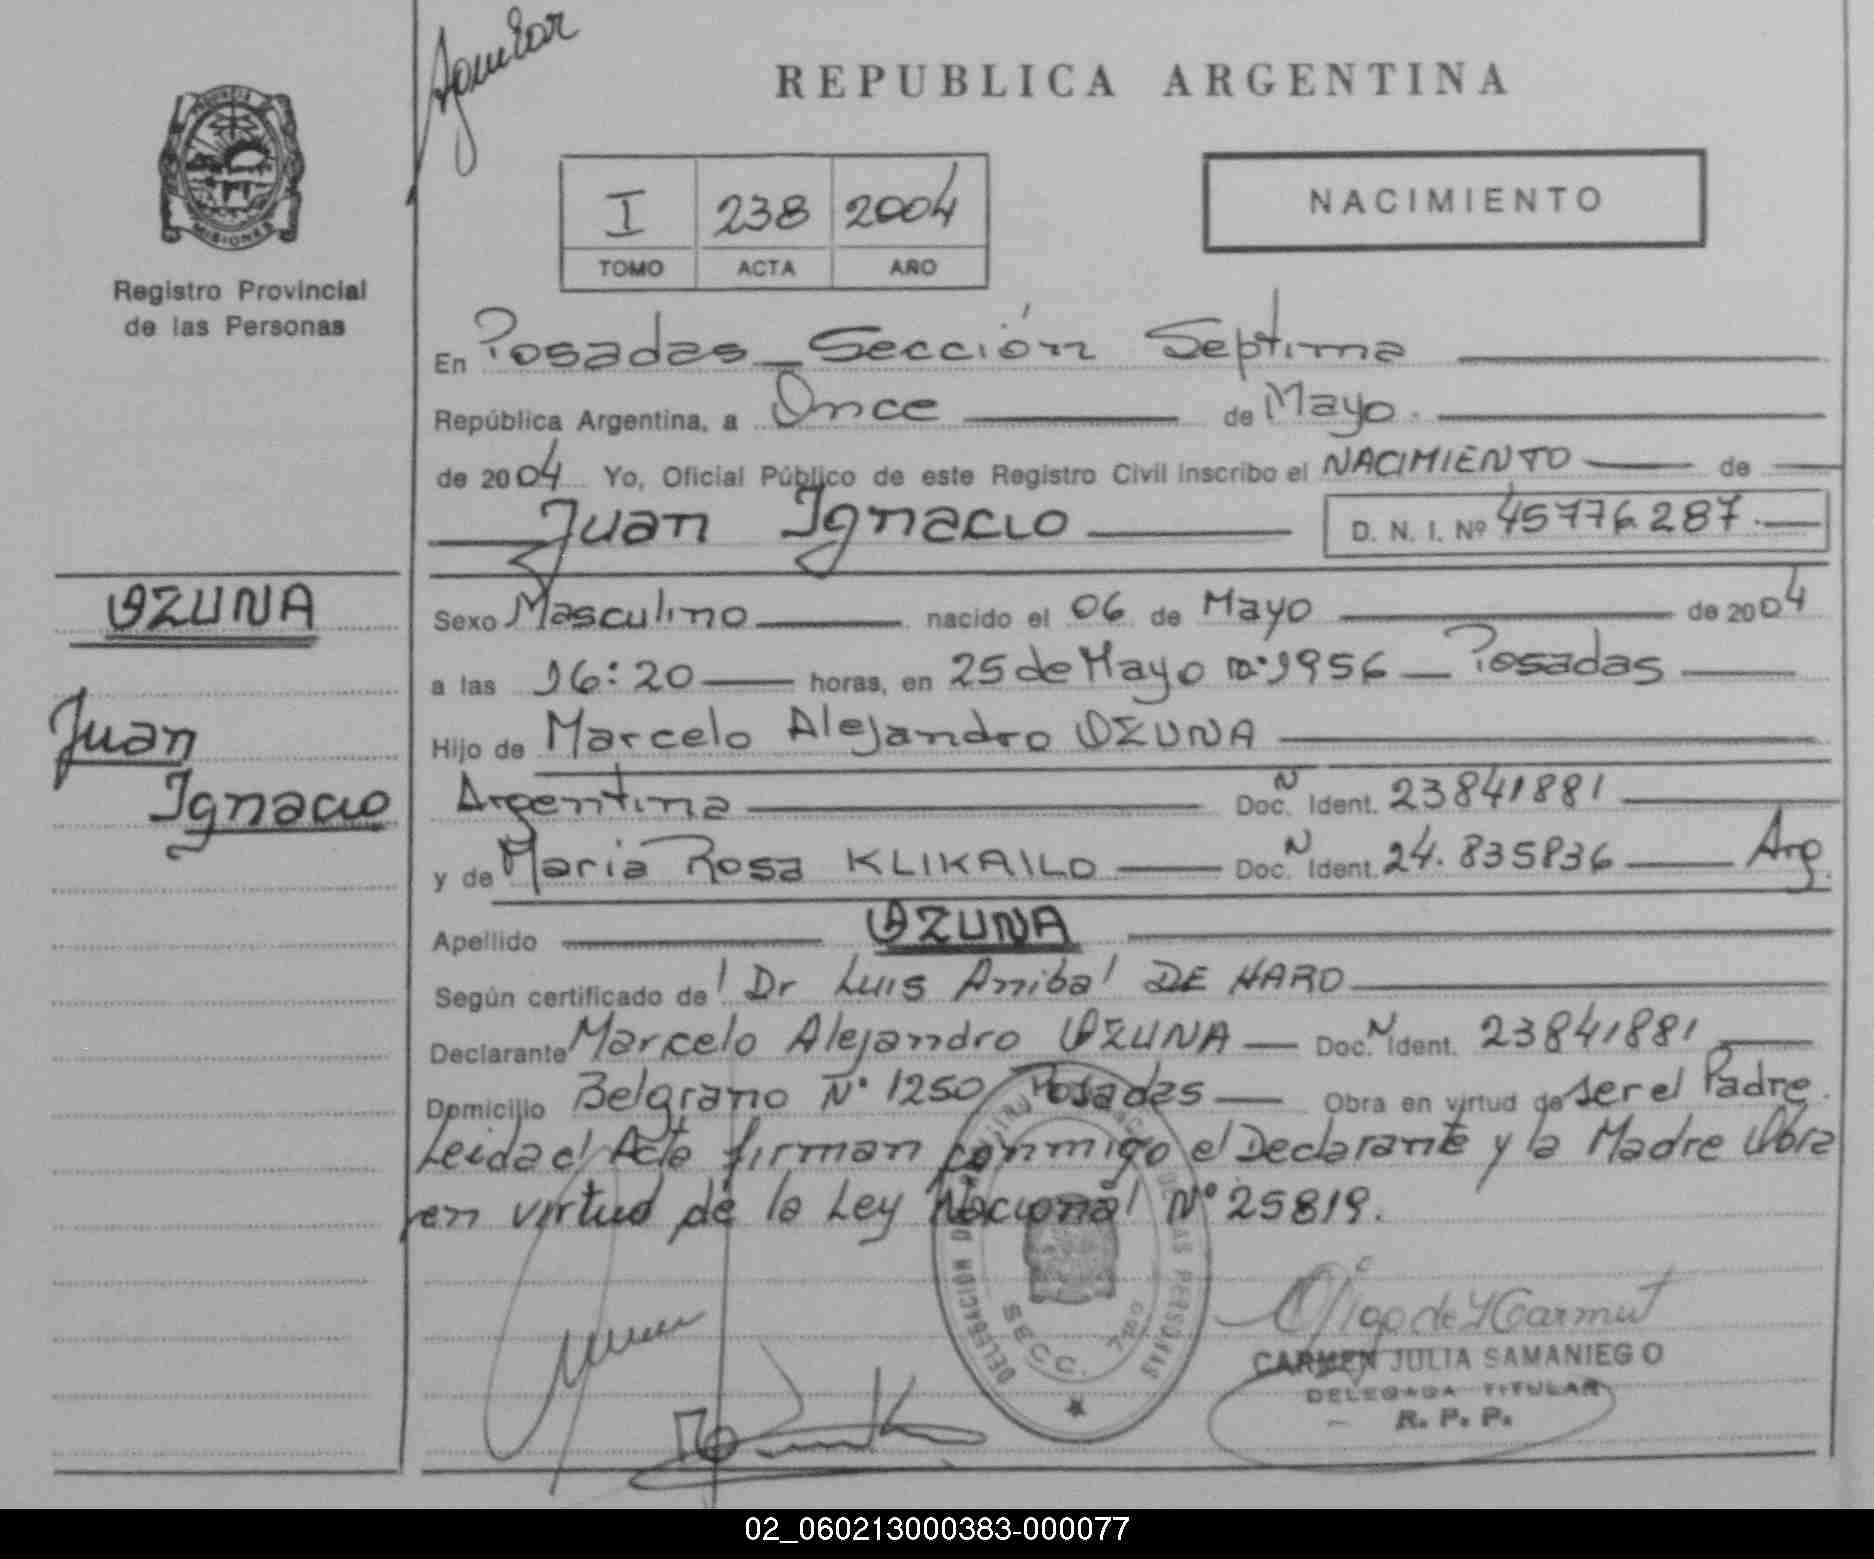 Aguilar
REPUBLICA ARGENTINA
PROVINCIA DE
MISIONES
Registro Provincial
de las Personas
I 238 2004
TOMO ACTA AÑO
NACIMIENTO
En Posadas - Sección Septima
República Argentina, a Once de Mayo.
de 2004 Yo, Oficial Público de este Registro Civil inscribo el NACIMIENTO de
Juan Ignacio D. N. I. Nº 45776.287.
OZUNA
Juan
Ignacio
Sexo Masculino nacido el 06 de Mayo de 2004
a las 16:20 horas, en 25 de Mayo nº: 1956 - Posadas
Hijo de Marcelo Alejandro OZUNA
Argentina Doc. N Ident. 23841881
y de Maria Rosa KLIKAILO Doc. N Ident. 24.835836 Arg.
Apellido OZUNA
Según certificado del Dr Luis Anibal DE HARO
Declarante Marcelo Alejandro OZUNA Doc. N Ident. 23841881
Domicilio Belgrano Nº 1250 Posadas Obra en virtud de ser el Padre.
Leida el Acta firman conmigo el Declarante y la Madre Obra
en virtud de la Ley Nacional Nº 25819.
DELEGACIÓN LAS PERSONAS
SECC. 7MA
CARMEN JULIA SAMANIEGO
DELEGADA TITULAR
R. P. P.
02_060213000383-000077